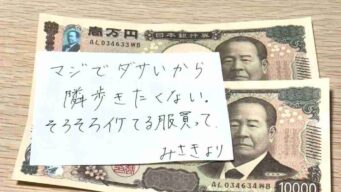 壱万円
日本銀行券
AL034633WB
マジでダサいから
隣歩きたくない。
そろそろイケてる服買って
みさきより
AL034634WB
10000